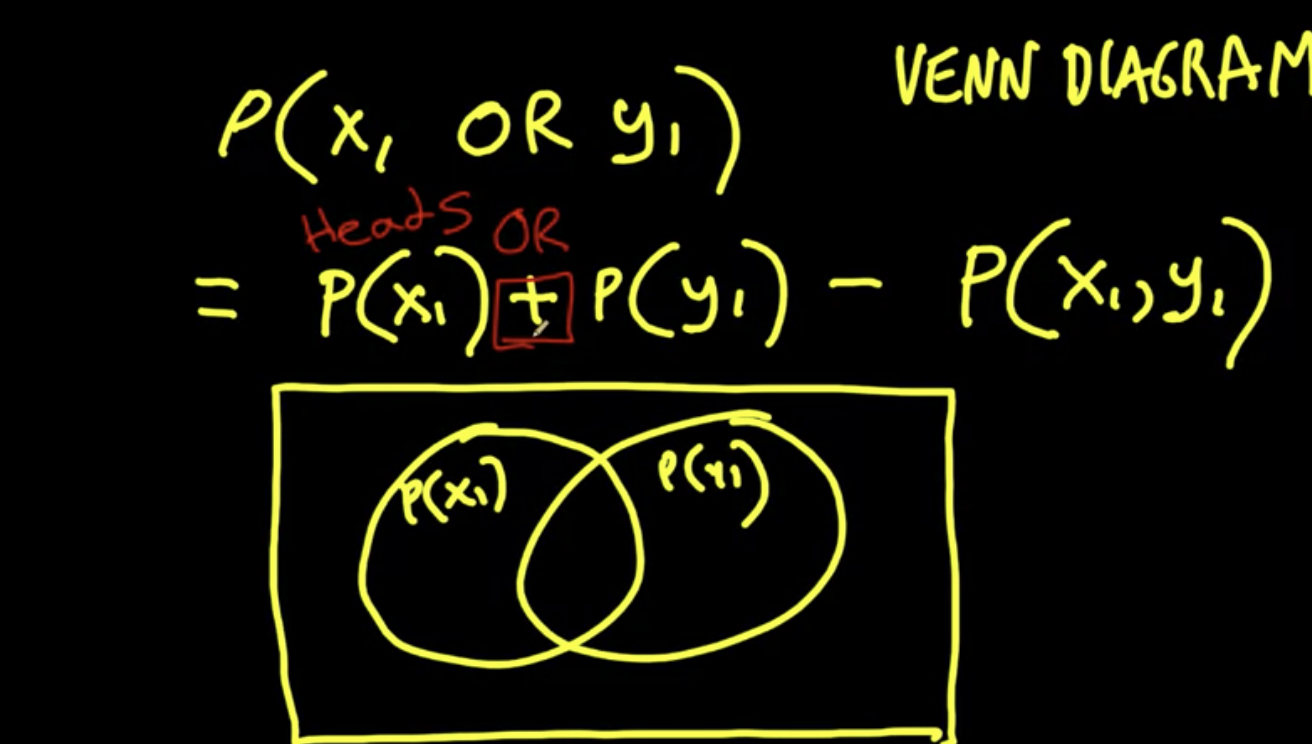 VENN DIAGRAM
P(x₁ OR y₁)
Heads OR
= P(x₁) + P(y₁) - P(x₁,y₁)
P(x₁) P(y₁)